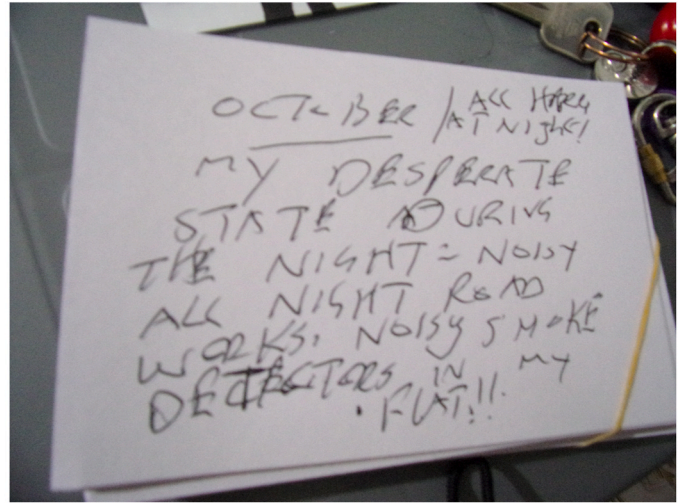 OCTOBER / ALL HOURS
AT NIGHT!
MY DESPERATE
STATE DURING
THE NIGHT = NOISY
ALL NIGHT ROAD
WORKS, NOISY SMOKE
DETECTORS IN MY
FLAT!!